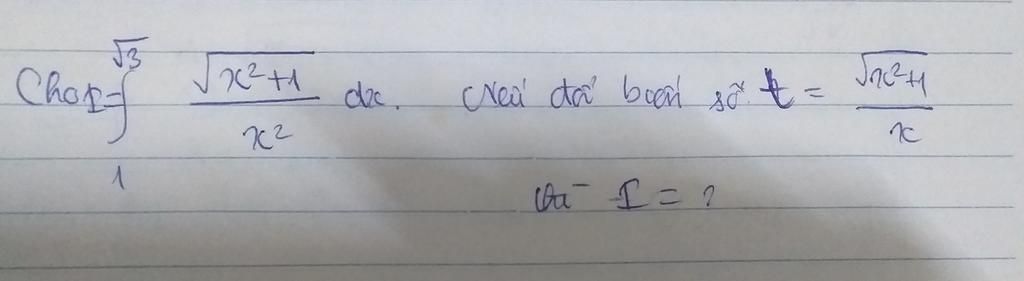 Cho I = ∫₁^√3 √(x²+1)/x² dx. Nếu đổi biến số t = √(x²+1)/x
I = ?